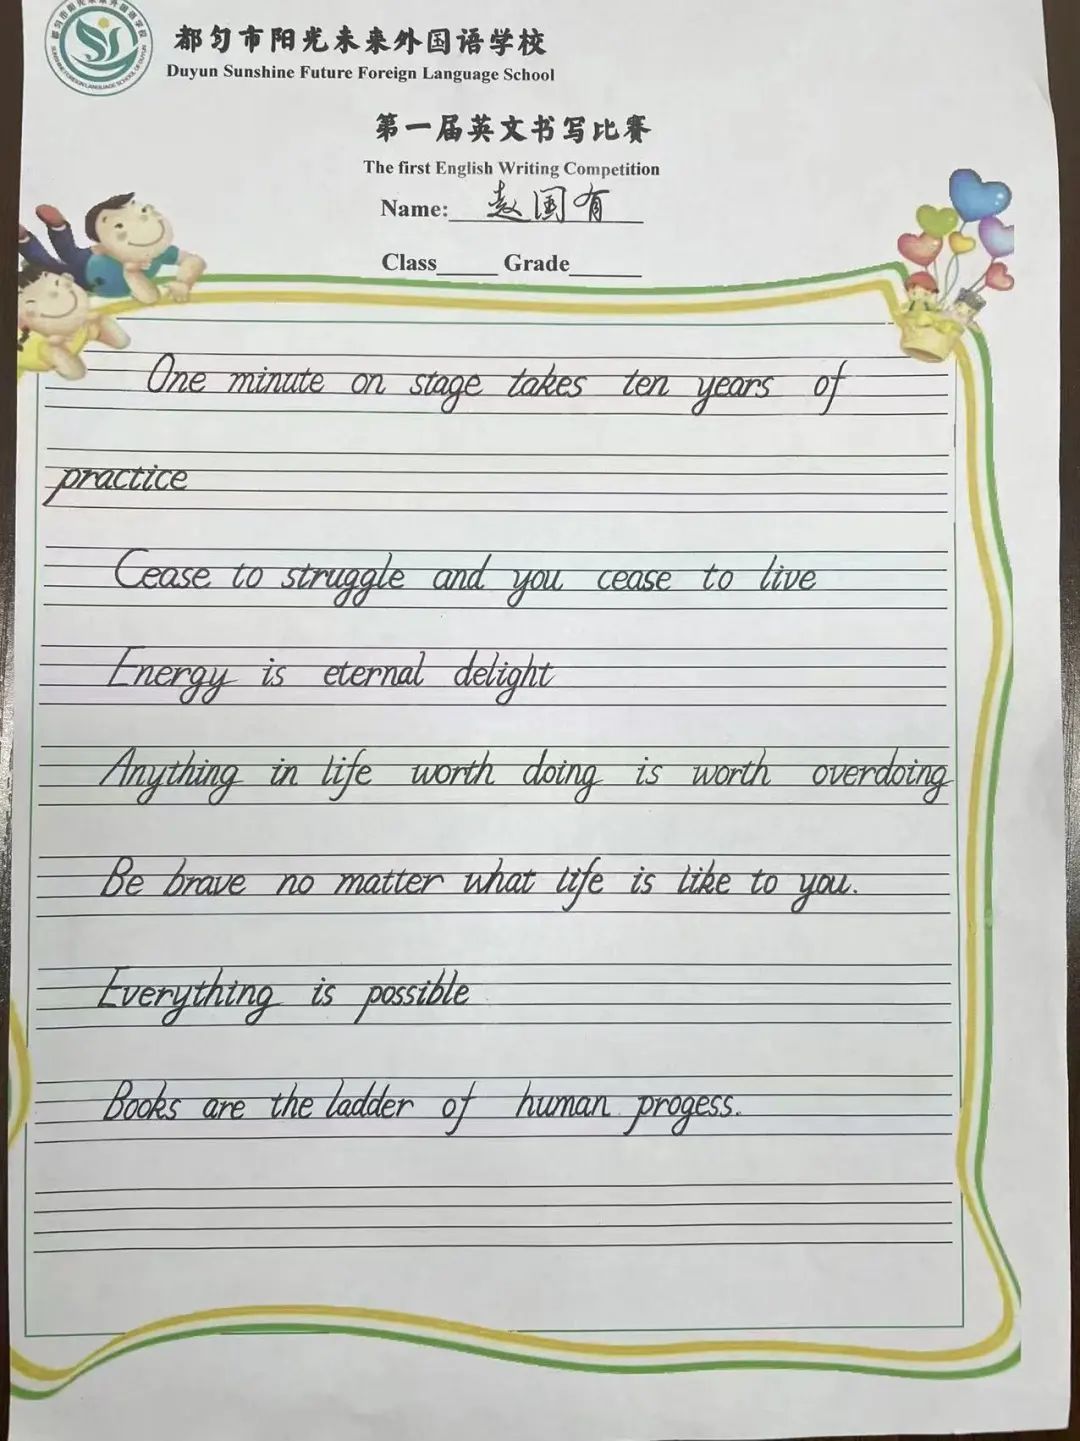 都匀市阳光未来外国语学校
Duyun Sunshine Future Foreign Language School
第一届英文书写比赛
The first English Writing Competition
Name: 赵国有
Class_____ Grade______
One minute on stage takes ten years of
practice
Cease to struggle and you cease to live
Energy is eternal delight
Anything in life worth doing is worth overdoing
Be brave no matter what life is like to you.
Everything is possible
Books are the ladder of human progess.